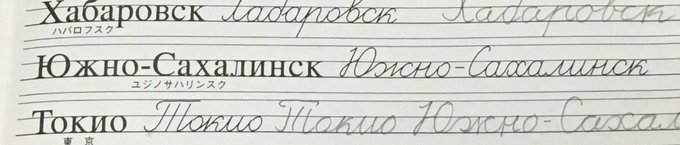 Хабаровск Хабаровск Хабаровск
ハバロフスク
Южно-Сахалинск Южно-Сахалинск
ユジノサハリンスク
Токио Токио Токио Южно-Сахал
東京